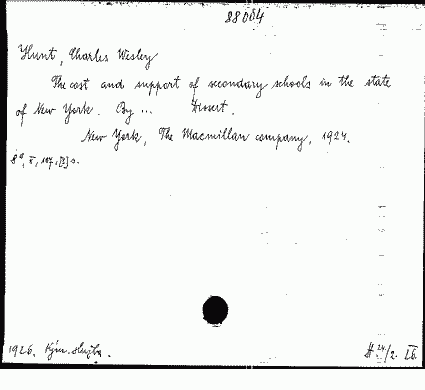 88004
Hunt, Charles Wesley
The cost and support of secondary schools in the state
of New York. By ... Dissert.
New York, The Macmillan company, 1924.
8°, X, 107, [2] s.
1926. Kým. služba. # 24/2. 26.